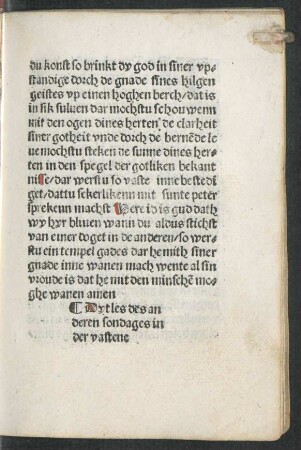 du konst so brinkt dy god in siner vp-
standige dorch de gnade sines hilgen
geistes vp einen hoghen berch/dat is
in sik suluen dar mochstu schouwenn
mit den ogen dines herten/ de clarheit
siner gotheit vnde dorch de bernẽde le
ue mochstu steken de sunne dines her-
ten in den spegel der gotliken bekant
nisse/dar werstu so vaste inne bestedi
get/dattu sekerlikenn mit sunte peter
sprekenn machst Here id is gud dath
wy hyr bliuen wann du aldus stichst
van einer doget in de anderen/so wer-
stu ein tempel gades dar he mith siner
gnade inne wanen mach wente al sin
vroude is dat he mit den minschẽ mo-
ghe wanen amen
¶ Dyt les des an
deren sondages in
der vastene